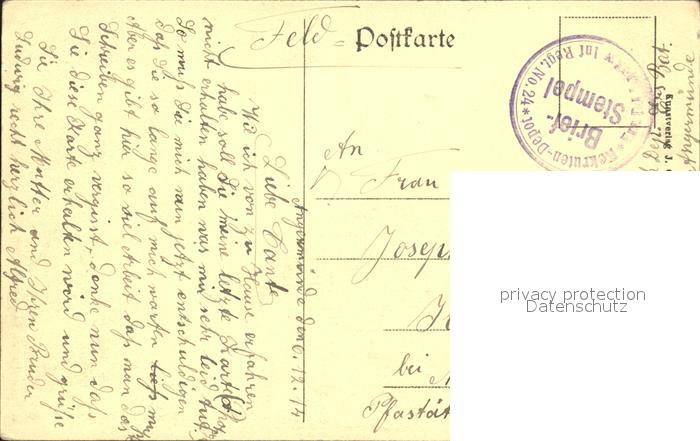 Feld - Postkarte
Brief-
Stempel
Rekruten-Depot
Inf Regt. No. 24
An
Frau
Joseph
bei
Pfastät
Angermünde den 6.12.14
Liebe Tante
Wie ich von zu Hause erfahren
habe soll Sie meine letzte Karte
nicht erhalten haben was mir sehr leid tut.
So muß Sie mich nun jetzt entschuldigen
daß Sie so lange auf mich warten muß
Aber es gibt hier so viel Arbeit daß man das
Schreiben ganz vergisst, denke nun daß
Sie diese Karte erhalten wird und grüße
Sie Ihre Mutter und Ihren Bruder
Ludwig recht herzlich Alfred
privacy protection
Datenschutz